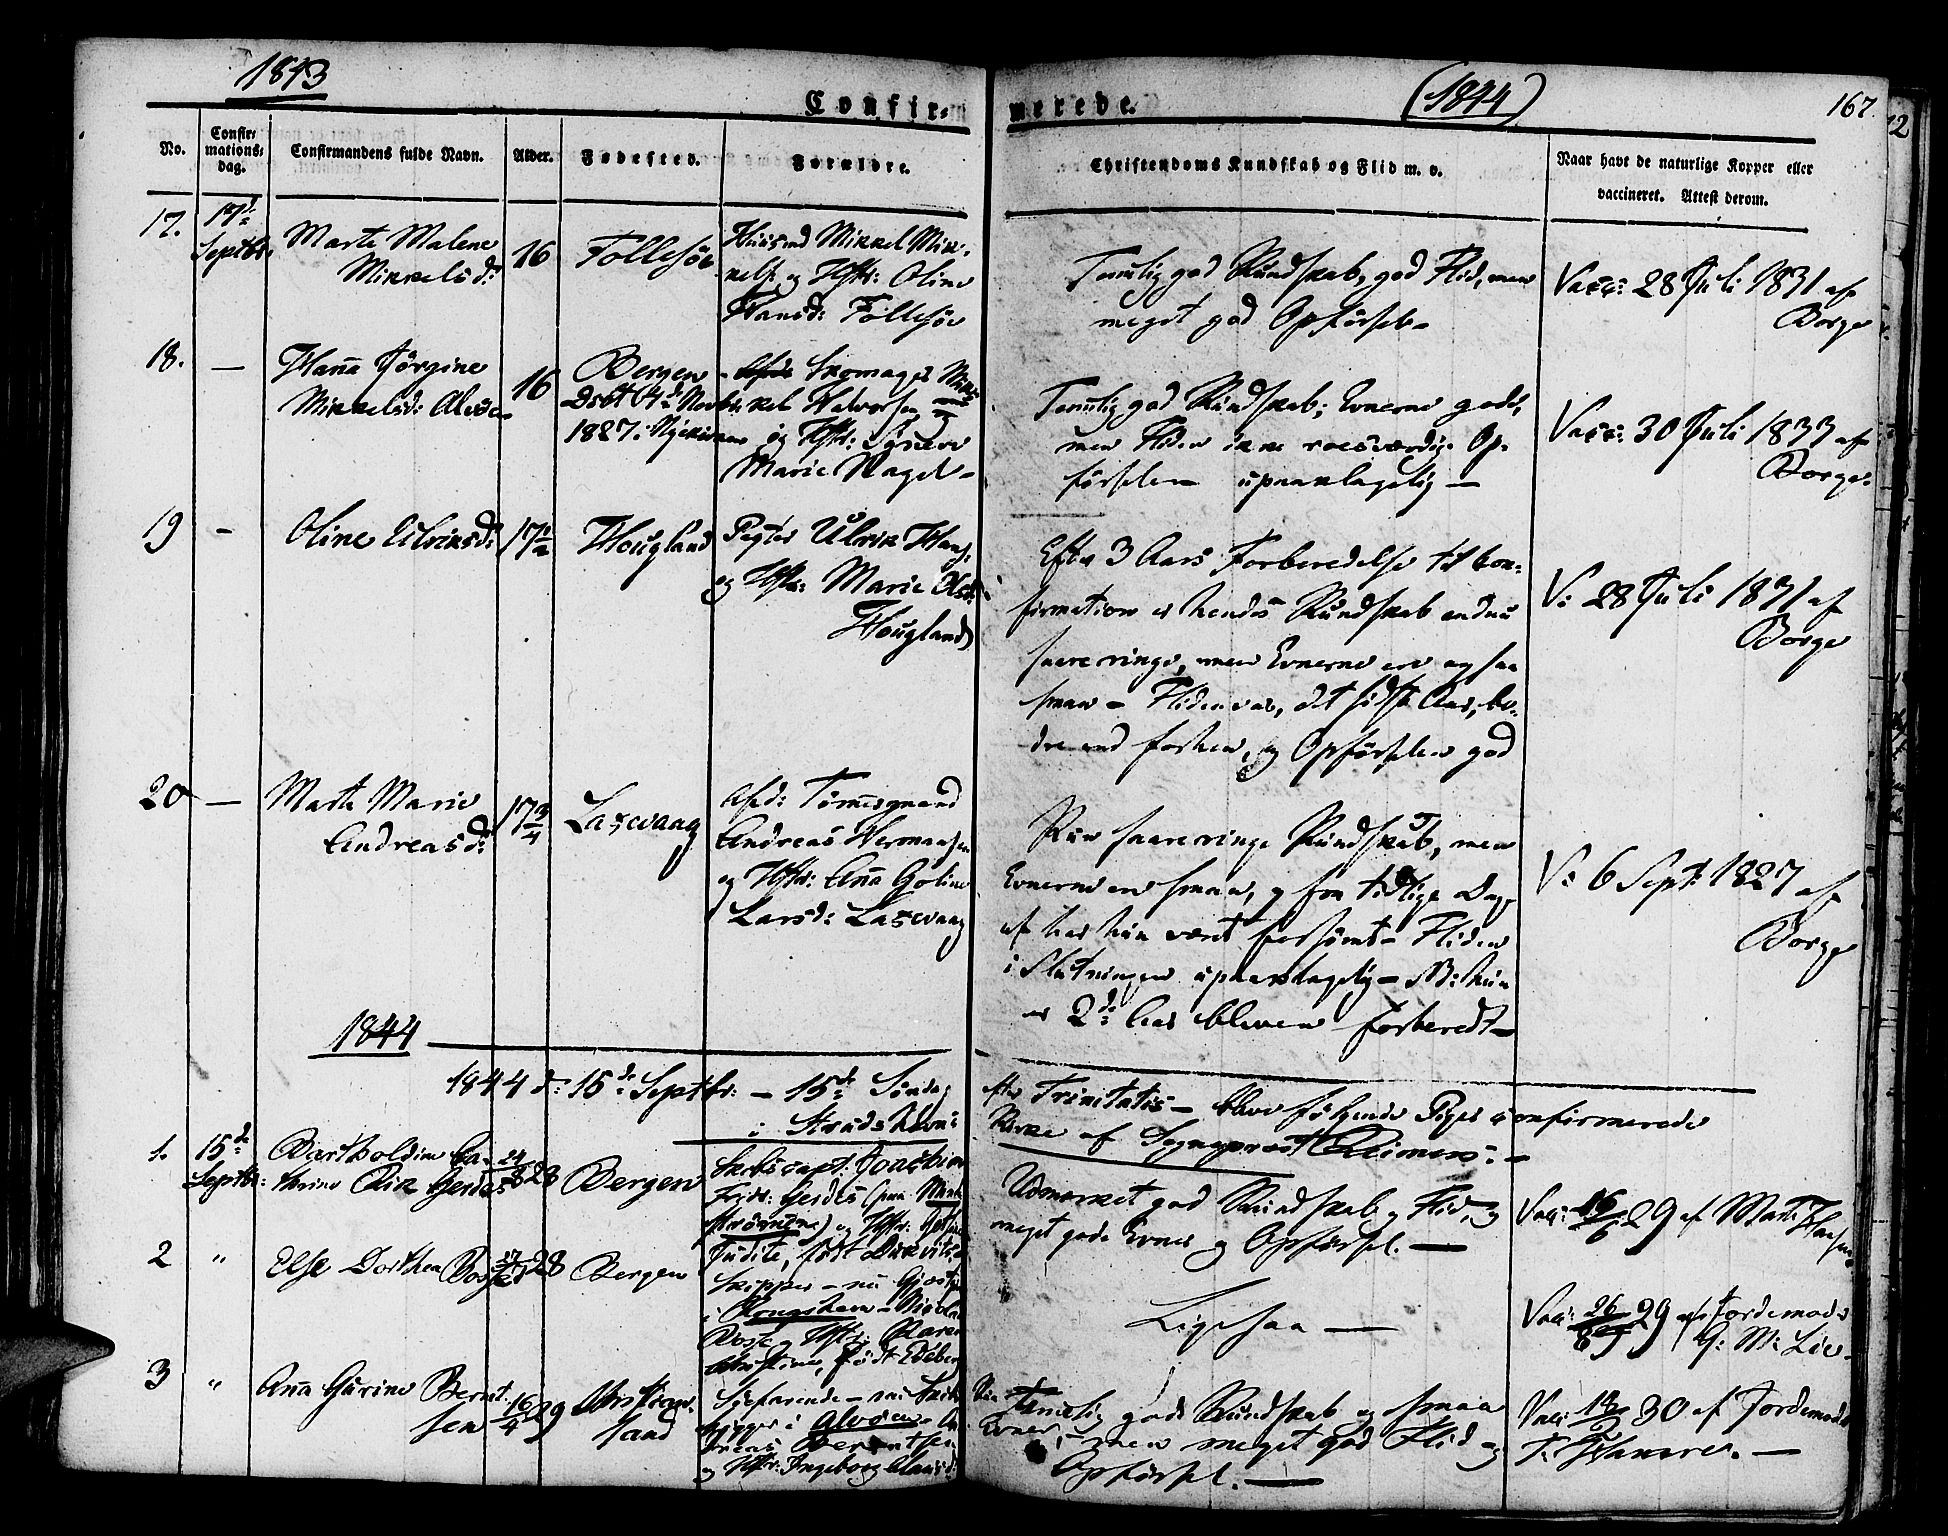 1843
Confir-
merede.
(1844)
167.
No.
Confir-
mations-
dag.
Confirmandens fulde Navn.
Alder.
Fødested.
Forældre.
Christendoms Kundskab og Flid m. v.
Naar havt de naturlige Kopper eller
vaccineret. Attest derom.
17.
17d:
Septbr:
Marte Malene
Mikkelsd:
16
Follesöe
Huusmd Mikkel Mik-
kels: og Hstr: Oline
Hansd: Follesöe
Temlig god Kundskab, god Flid, men
meget god Opförsel-
Vacc: 28 Juli 1831 af
Borge
18.
—
Hanna Jörgine
Mikkelsd: Alvöen
16
Bergen -
Döbt 4d Novbr:
1827. Nykirken
Skomager Mik-
kel Halvorsen
og Hstr:
Marie Nagel-
Temlig god Kundskab; Evnerne gode,
men Fliden ikke roesværdig. Op-
förselen upaaklagelig —
Vacc: 30 Juli 1833 af
Borge:
19
-
Oline Ulriksd:
17½
Hougland
Pagter Ulrik Hans.
og Hstr: Marie Olsd:
Hougland
Efter 3 Aars Forberedelse til Con-
firmation er hendes Kundskab endnu
saare ringe, men Evnerne ere og saa
smaa - Fliden var, det sidste Aar, be-
dre end forhen, og Opförselen god
V: 28 Juli 1831 af
Borge
20
—
Marte Marie
Andreasd:
17¾
Laxevaag
Afsd: Tömesmand
Andreas Hermansen
og Hstr: Anna Goline
Larsd: Laxevaag
Kun saare ringe Kundskab, men
Evnerne ere smaa, og fra tidlige Dage
af har hun været forsömt - Fliden
i Slutningen upaaklagelig - NB: hun
er 2d: Aar bleven forberedt-
V: 6 Sept: 1827 af
Borge
1844
1844 d: 15d: Septbr: - 15d: Söndag
efter Trinitatis - bleve fölgende Piger confirmerede
i Strudshavns
Kirke af Sognepræst Reimers: -
1.
15d:
Septbr:
Bartholdine Ca-
thrine Rik Gerdes
24/8 28
Bergen
Skibscapt: Joachim
Fredr: Gerdes (paa
) og Hstr:
Udmærket god Kundskab, Flid, og
meget gode Evner og Opförsel. —
Vac: 16/6 29 af Marte Hansen
2
"
Else Dorthea
28
Bergen
Judite, födt
Skipper - nu Gjæstg:
i Kongshavn - Nicolai
og Hstr: Karen
Christine, födt
Ligesaa —
Vac: 26/8 29 af Jordemoder
G: M: Lie-
3
"
Anna Gurine Bernt-
sen
16/4 29
Christian-
sand
Söefarende - nu
i Alvöen - An-
dreas Berentsen
og Hstr: Ingeborg Clausd:
Temelig god Kundskab og smaa
Evner, - men meget god Flid og
Opförsel. —
Vac: 30 af Jordemoder
T. Hansen. —